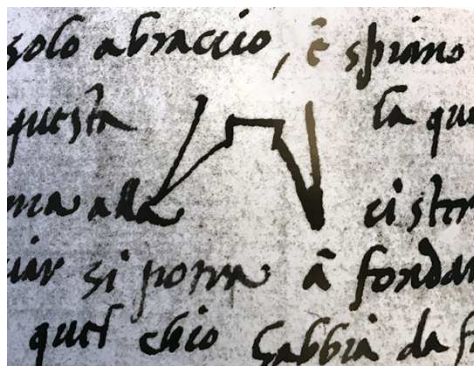 solo abraccio, è spiano
questa la qu
nza alla ci ster
iar si potra â fondar
quel chio habbia da f